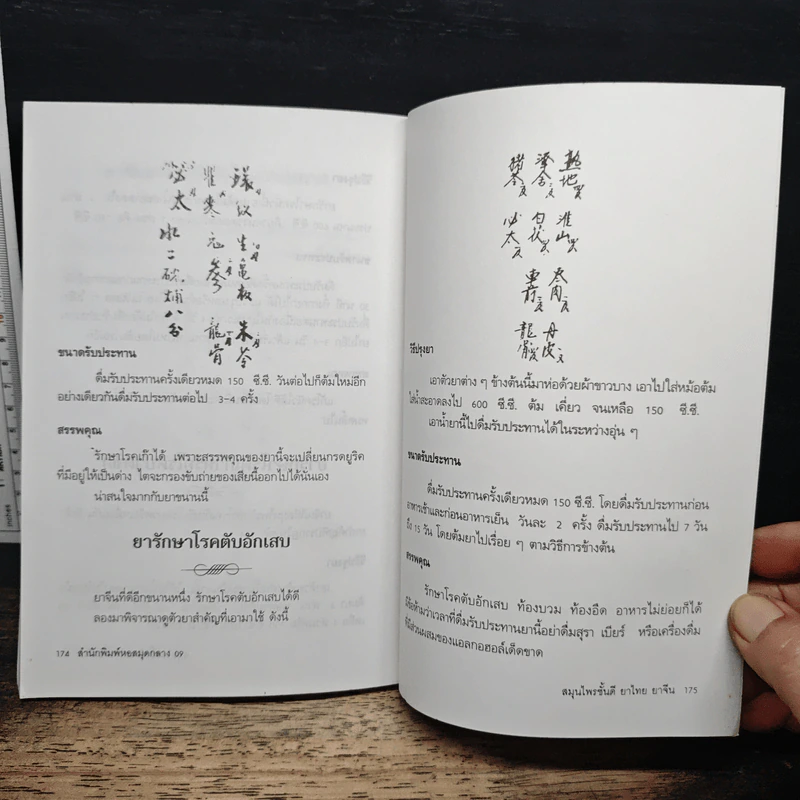 ขนาดรับประทาน
ดื่มรับประทานครั้งเดียวหมด 150 ซี.ซี. วันต่อไปก็ต้มใหม่อีก
อย่างเดียวกันดื่มรับประทานต่อไป 3-4 ครั้ง
สรรพคุณ
รักษาโรคเก๊าได้ เพราะสรรพคุณของยานี้จะเปลี่ยนกรดยูริค
ที่มีอยู่ให้เป็นด่าง ไตจะกรองขับถ่ายของเสียนี้ออกไปได้นั่นเอง
น่าสนใจมากกับยาขนานนี้
ยารักษาโรคตับอักเสบ
ยาจีนที่ดีอีกขนานหนึ่ง รักษาโรคตับอักเสบได้ดี
ลองมาพิจารณาดูตัวยาสำคัญที่เอามาใช้ ดังนี้
174 สำนักพิมพ์หอสมุดกลาง 09
熟地
澤舍
豬苓
淮山
白伏
必太
丹皮
龍骨
วิธีปรุงยา
เอาตัวยาต่าง ๆ ข้างต้นนี้มาห่อด้วยผ้าขาวบาง เอาไปใส่หม้อต้ม
ใส่น้ำสะอาดลงไป 600 ซี.ซี. ต้ม เคี่ยว จนเหลือ 150 ซี.ซี.
เอาน้ำยานี้ไปดื่มรับประทานได้ในระหว่างอุ่น ๆ
ขนาดรับประทาน
ดื่มรับประทานครั้งเดียวหมด 150 ซี.ซี. โดยดื่มรับประทานก่อน
อาหารเช้าและก่อนอาหารเย็น วันละ 2 ครั้ง ดื่มรับประทานไป 7 วัน
ถึง 15 วัน โดยต้มยาไปเรื่อย ๆ ตามวิธีการข้างต้น
สรรพคุณ
รักษาโรคตับอักเสบ ท้องบวม ท้องอืด อาหารไม่ย่อยก็ได้
มีข้อห้ามว่าเวลาที่ดื่มรับประทานยานี้อย่าดื่มสุรา เบียร์ หรือเครื่องดื่ม
ที่มีส่วนผสมของแอลกอฮอล์เด็ดขาด
สมุนไพรชั้นดี ยาไทย ยาจีน 175